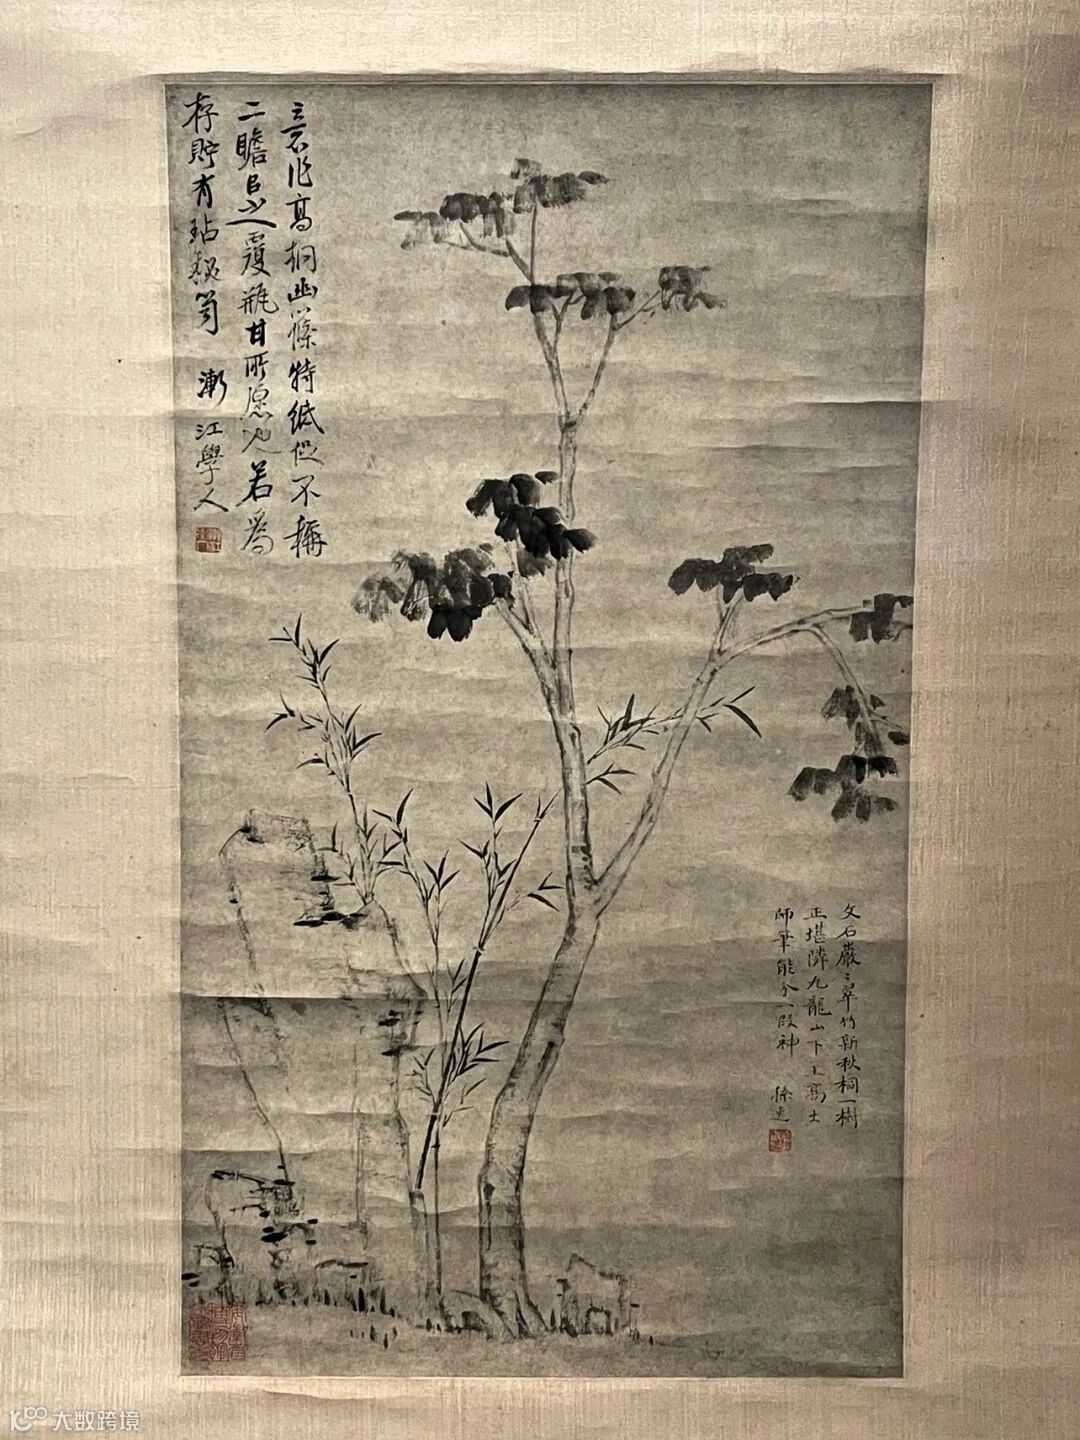 意作高桐幽篠特紙似不稱
二瞻臣之覆瓶甘所愿也若爲
存貯有玷
漸江學人
文石巖〻翠竹新秋桐一樹
正堪隣九龍山下王高士
師筆能分一段神
大数跨境